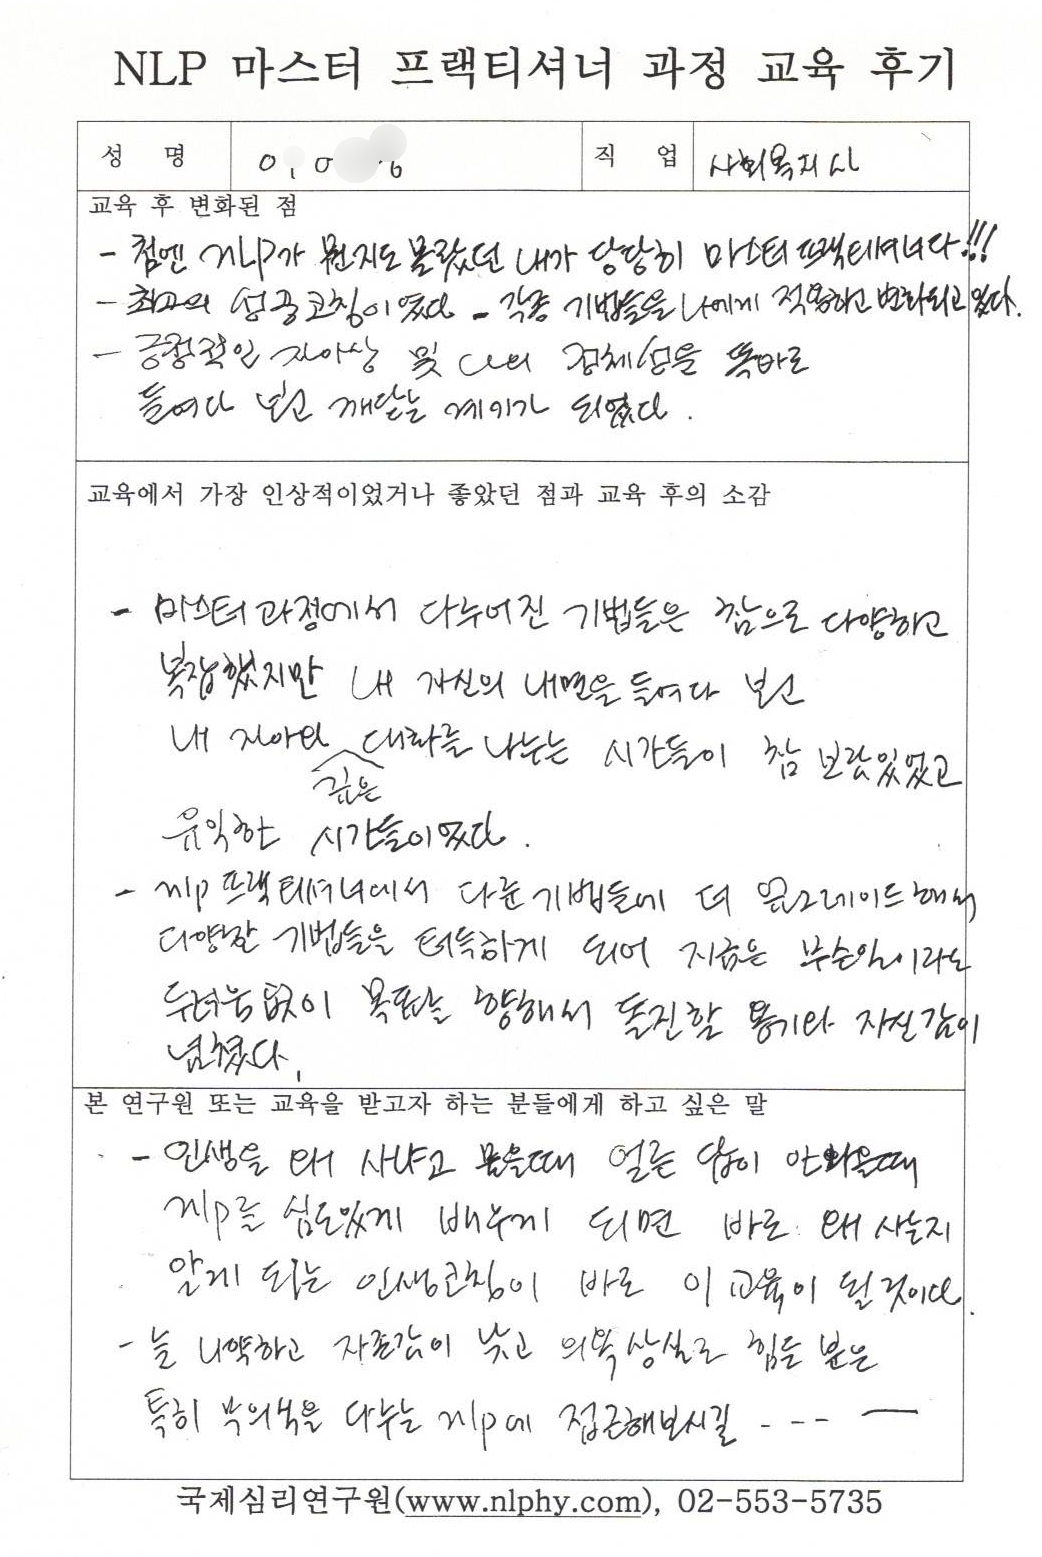 NLP 마스터 프랙티셔너 과정 교육 후기
성 명
직 업 사회복지사
교육 후 변화된 점
- 첨엔 NLP가 뭔지도 몰랐던 내가 당당히 마스터 프랙티셔너다!!!
- 최고의 성공코칭이였다 - 각종 기법들을 나에게 적용하고 변화되고 있다.
- 긍정적인 자아상 및 나의 정체성을 똑바로
들여다 보고 깨닫는 계기가 되였다.
교육에서 가장 인상적이었거나 좋았던 점과 교육 후의 소감
- 마스터과정에서 다누어진 기법들은 참으로 다양하고
복잡했지만 내 자신의 내면을 들여다 보고
내 자아와 대화를 나누는 시간들이 참 보람있었고
깊은
유익한 시간들이였다.
- nlp 프랙티셔너에서 다룬 기법들에 더 업그레이드해서
다양한 기법들을 터득하게 되어 지금은 무슨일이라도
두려움없이 목표를 향해서 돌진할 용기와 자신감이
넘쳤다.
본 연구원 또는 교육을 받고자 하는 분들에게 하고 싶은 말
- 인생을 왜 사냐고 물을때 얼른 답이 안나올때
nlp를 심도있게 배우게 되면 바로 왜 사는지
알게 되는 인생코칭이 바로 이 교육이 될 것이다.
- 늘 나약하고 자존감이 낮고 의욕상실로 힘든 분은
특히 무의식을 다누는 nlp에 접근해보시길 - - - —
국제심리연구원(www.nlphy.com), 02-553-5735